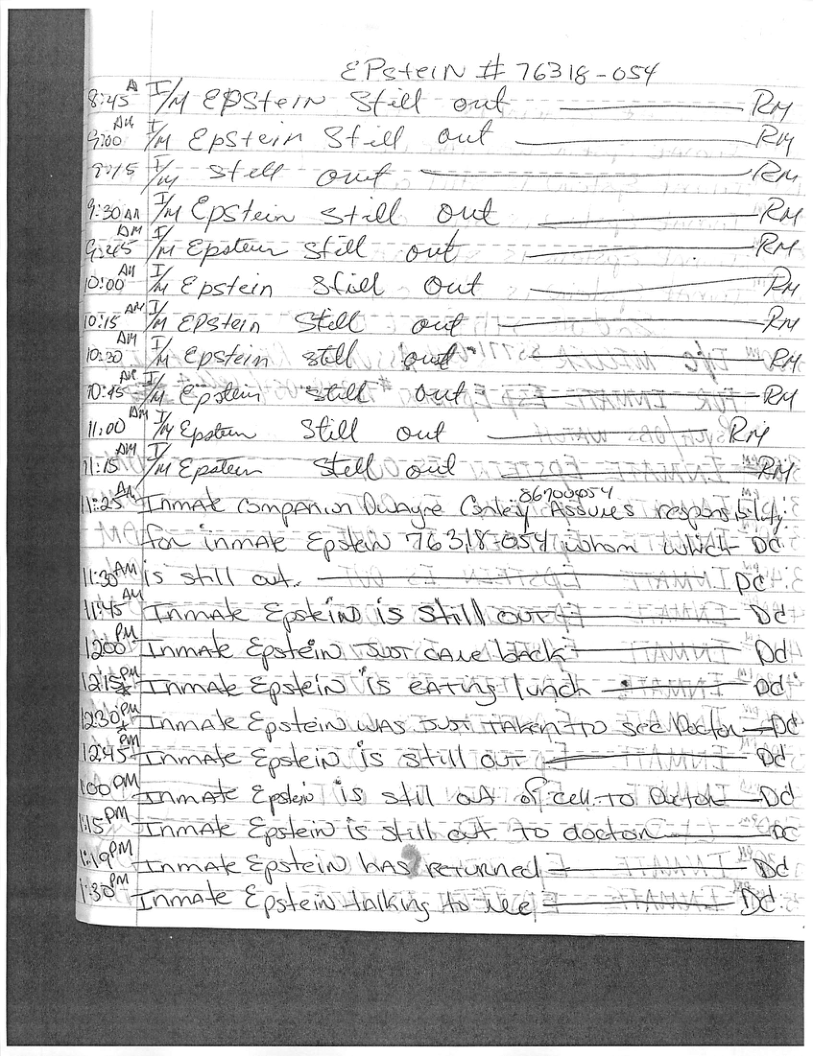 EPstein # 76318-054
8:45 A I/M EPStein Still out RM
9:00 AM I/M Epstein Still out RM
9:15 I/M still out RM
9:30 AM I/M Epstein Still out RM
9:45 AM I/M Epstein Still out RM
10:00 AM I/M Epstein Still Out RM
10:15 AM I/M EPStein Still out RM
10:30 AM I/M Epstein still out RM
10:45 AM I/M Epstein still out RM
11:00 AM I/M Epstein Still out RM
11:15 AM I/M Epstein Still out RM
86700054
11:25 AM Inmate Companion Dwayne Assures responsibility
for inmate Epstein 76318-054 whom which Dc
11:30 AM is still out. Dc
11:45 AM Inmate Epstein is still out Dd
12:00 PM Inmate Epstein just came back Dd
12:15 PM * Inmate Epstein is eating lunch Dd
12:30 PM * Inmate Epstein was just taken to see Doctor Dc
12:45 PM Inmate Epstein is still out Dd
1:00 PM Inmate Epstein is still out of cell to Doctor Dd
1:15 PM Inmate Epstein is still out to doctor Dc
1:19 PM Inmate Epstein has returned Dd
1:30 PM Inmate Epstein talking to me Dd.